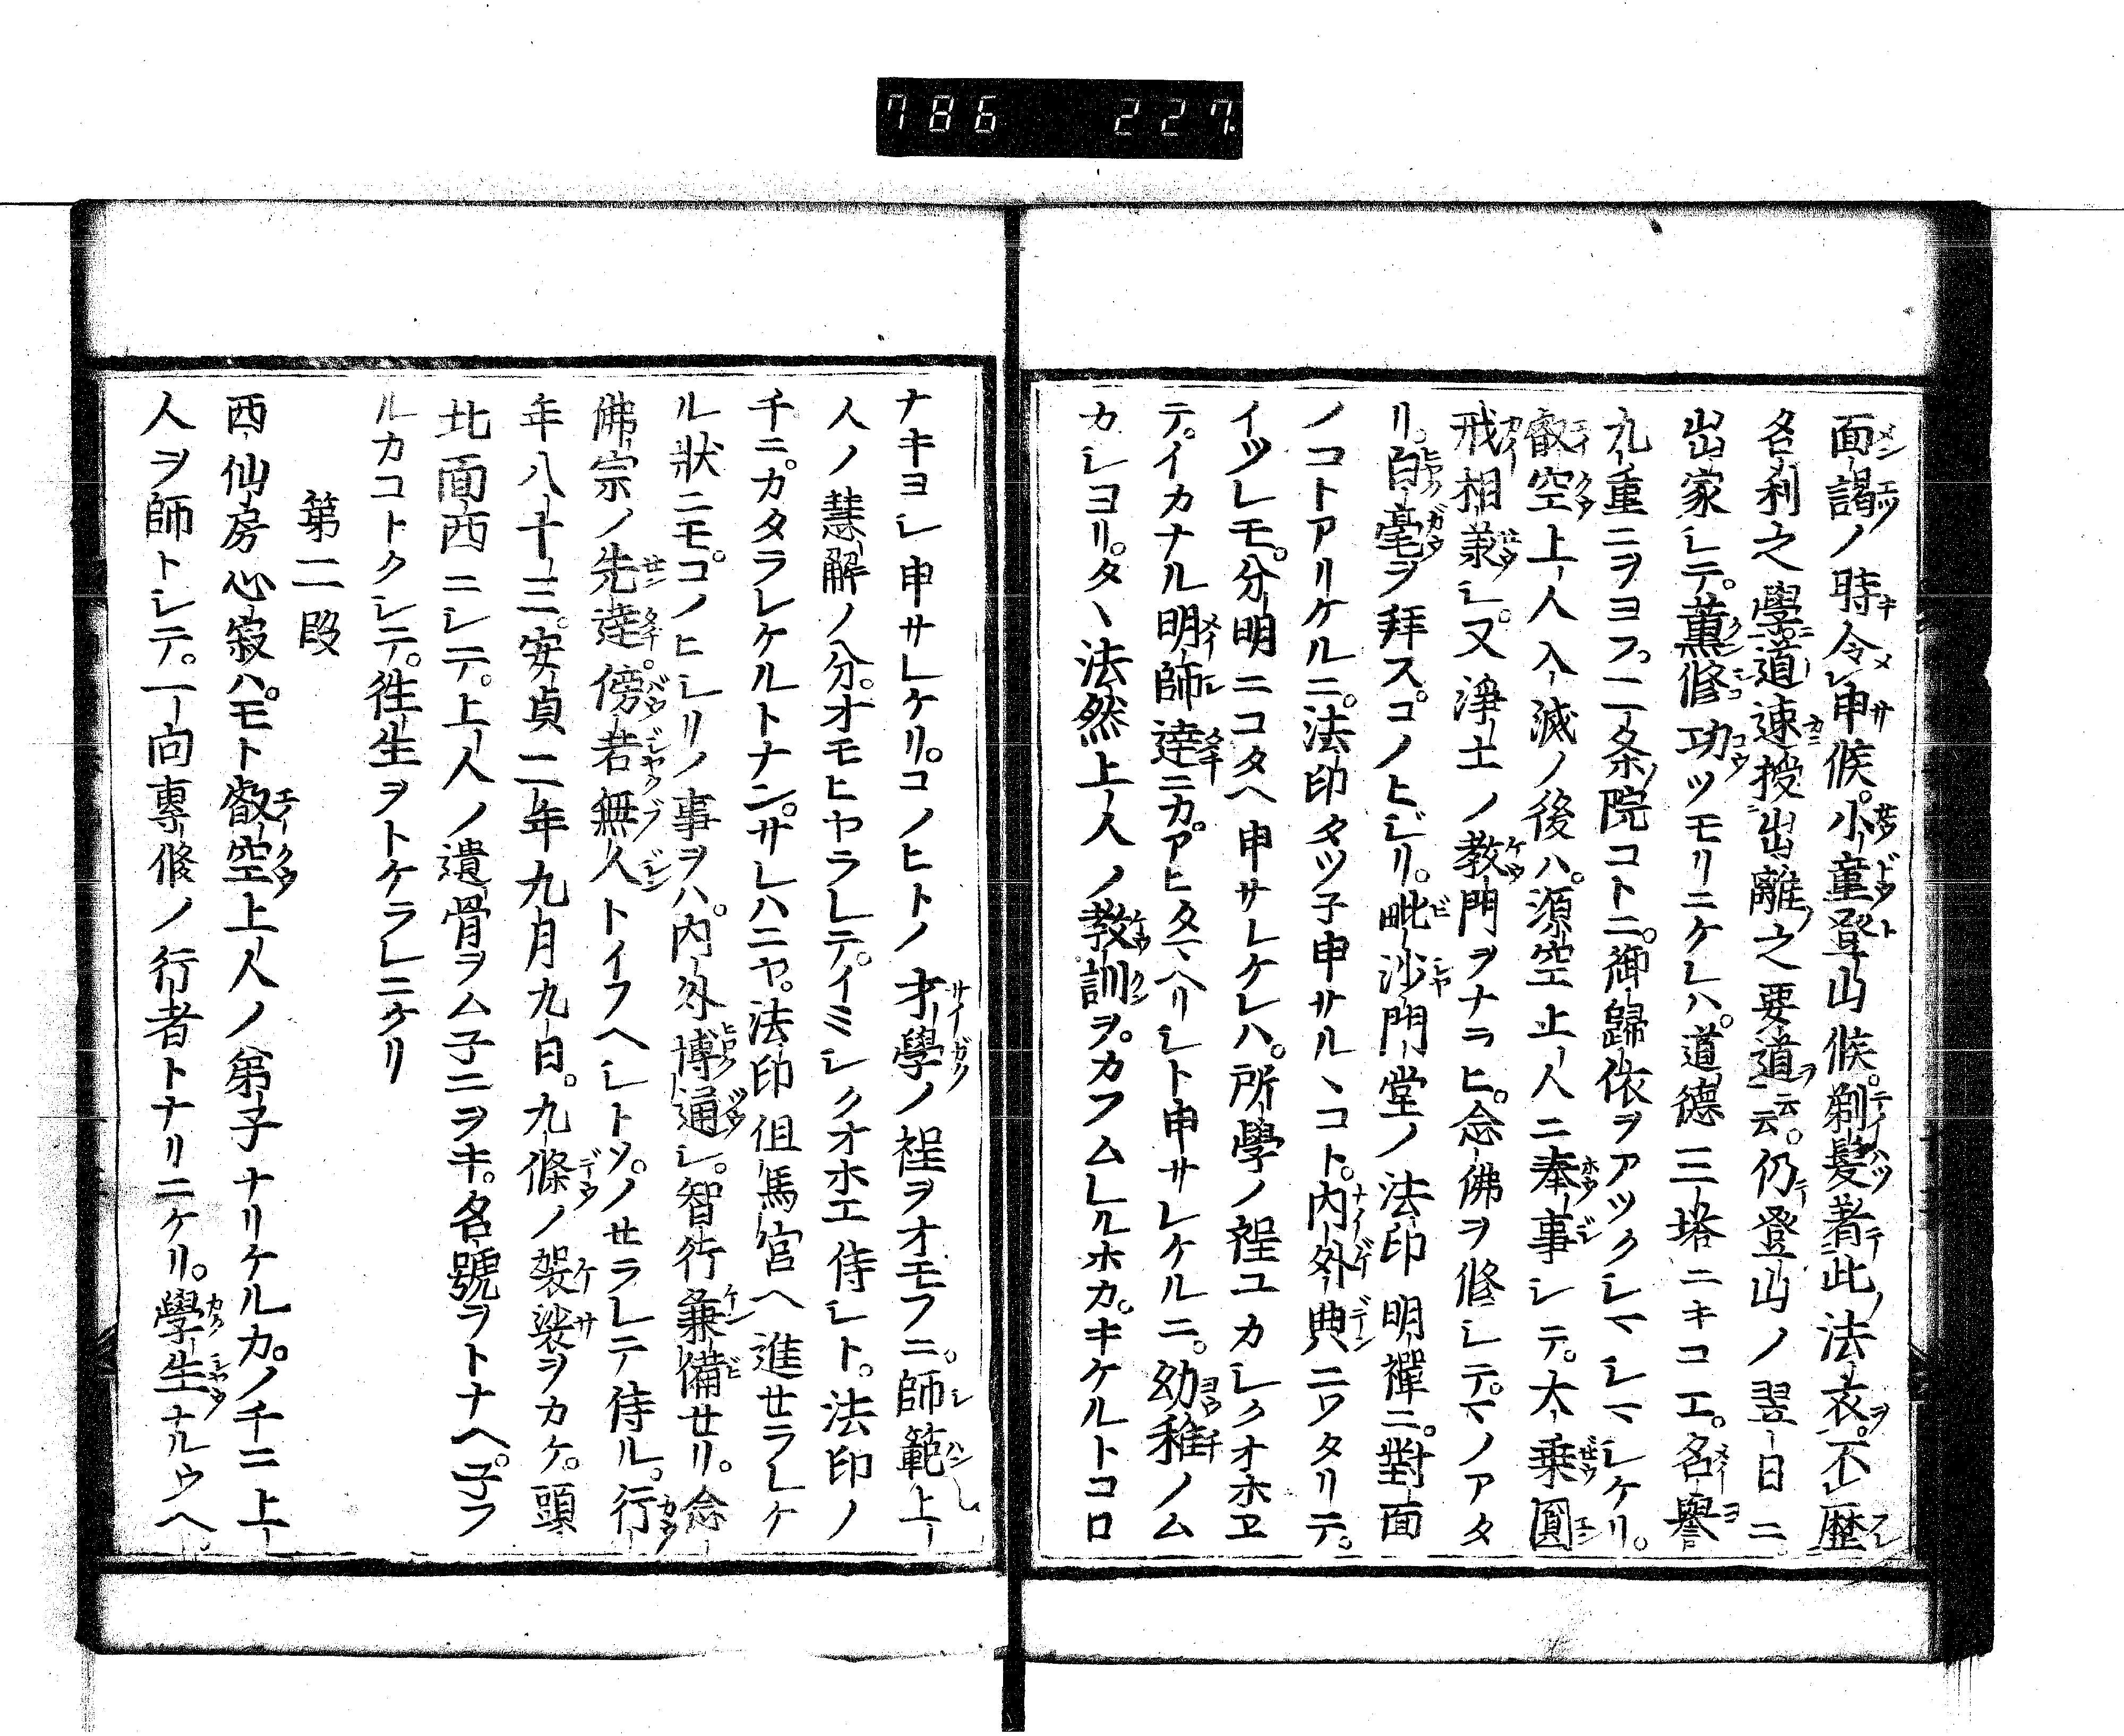 786 227
面謁ノ時令申候。小童登山候。剃髮着此法衣。不歴
名利之學道速授出離之要道云云。仍登山ノ翌日ニ。
出家シテ。薫修功ツモリニケレハ。道德三塔ニキコエ。名譽
九重ニヲヨフ。二条院コトニ。御歸依ヲアツクシマシマシケリ。
叡空上人入滅ノ後ハ。源空上人ニ奉事シテ。大乗圓
戒相兼シ。又淨土ノ教門ヲナラヒ。念佛ヲ修シテ。マノアタ
リ。白毫ヲ拜ス。コノヒジリ。毗沙門堂ノ法印明禪ニ。對面
ノコトアリケルニ。法印タツ子申サルヽコト。内外典ニワタリテ。
イツレモ。分明ニコタヘ申サレケレハ。所學ノ程ユカシクオホヱ
テ。イカナル明師達ニカ。アヒタマヘリシト申サレケルニ。幼稚ノム
カシヨリ。タヽ法然上人ノ教訓ヲ。カフムレルホカ。キケルトコロ
ナキヨシ申サレケリ。コノヒトノ才學ノ程ヲオモフニ。師範上
人ノ慧解ノ分。オモヒヤラレテ。イミシクオホエ侍シト。法印ノ
チニ。カタラレケルトナン。サレハニヤ。法印但馬宮ヘ進セラレケ
ル狀ニモ。コノヒシリノ事ヲハ。内外博通シ。智行兼備セリ。念
佛宗ノ先達。傍若無人トイフヘシトソ。ノセラレテ侍ル。行
年八十三。安貞二年九月九日。九條ノ袈裟ヲカケ。頭
北面西ニシテ。上人ノ遺骨ヲム子ニヲキ。名號ヲトナヘ。子フ
ルカコトクシテ。徃生ヲトケラレニケリ
第二段
西仙房心寂ハ。モト叡空上人ノ弟子ナリケルカ。ノチニ上
人ヲ師トシテ。一向專修ノ行者トナリニケリ。學生ナルウヘ。